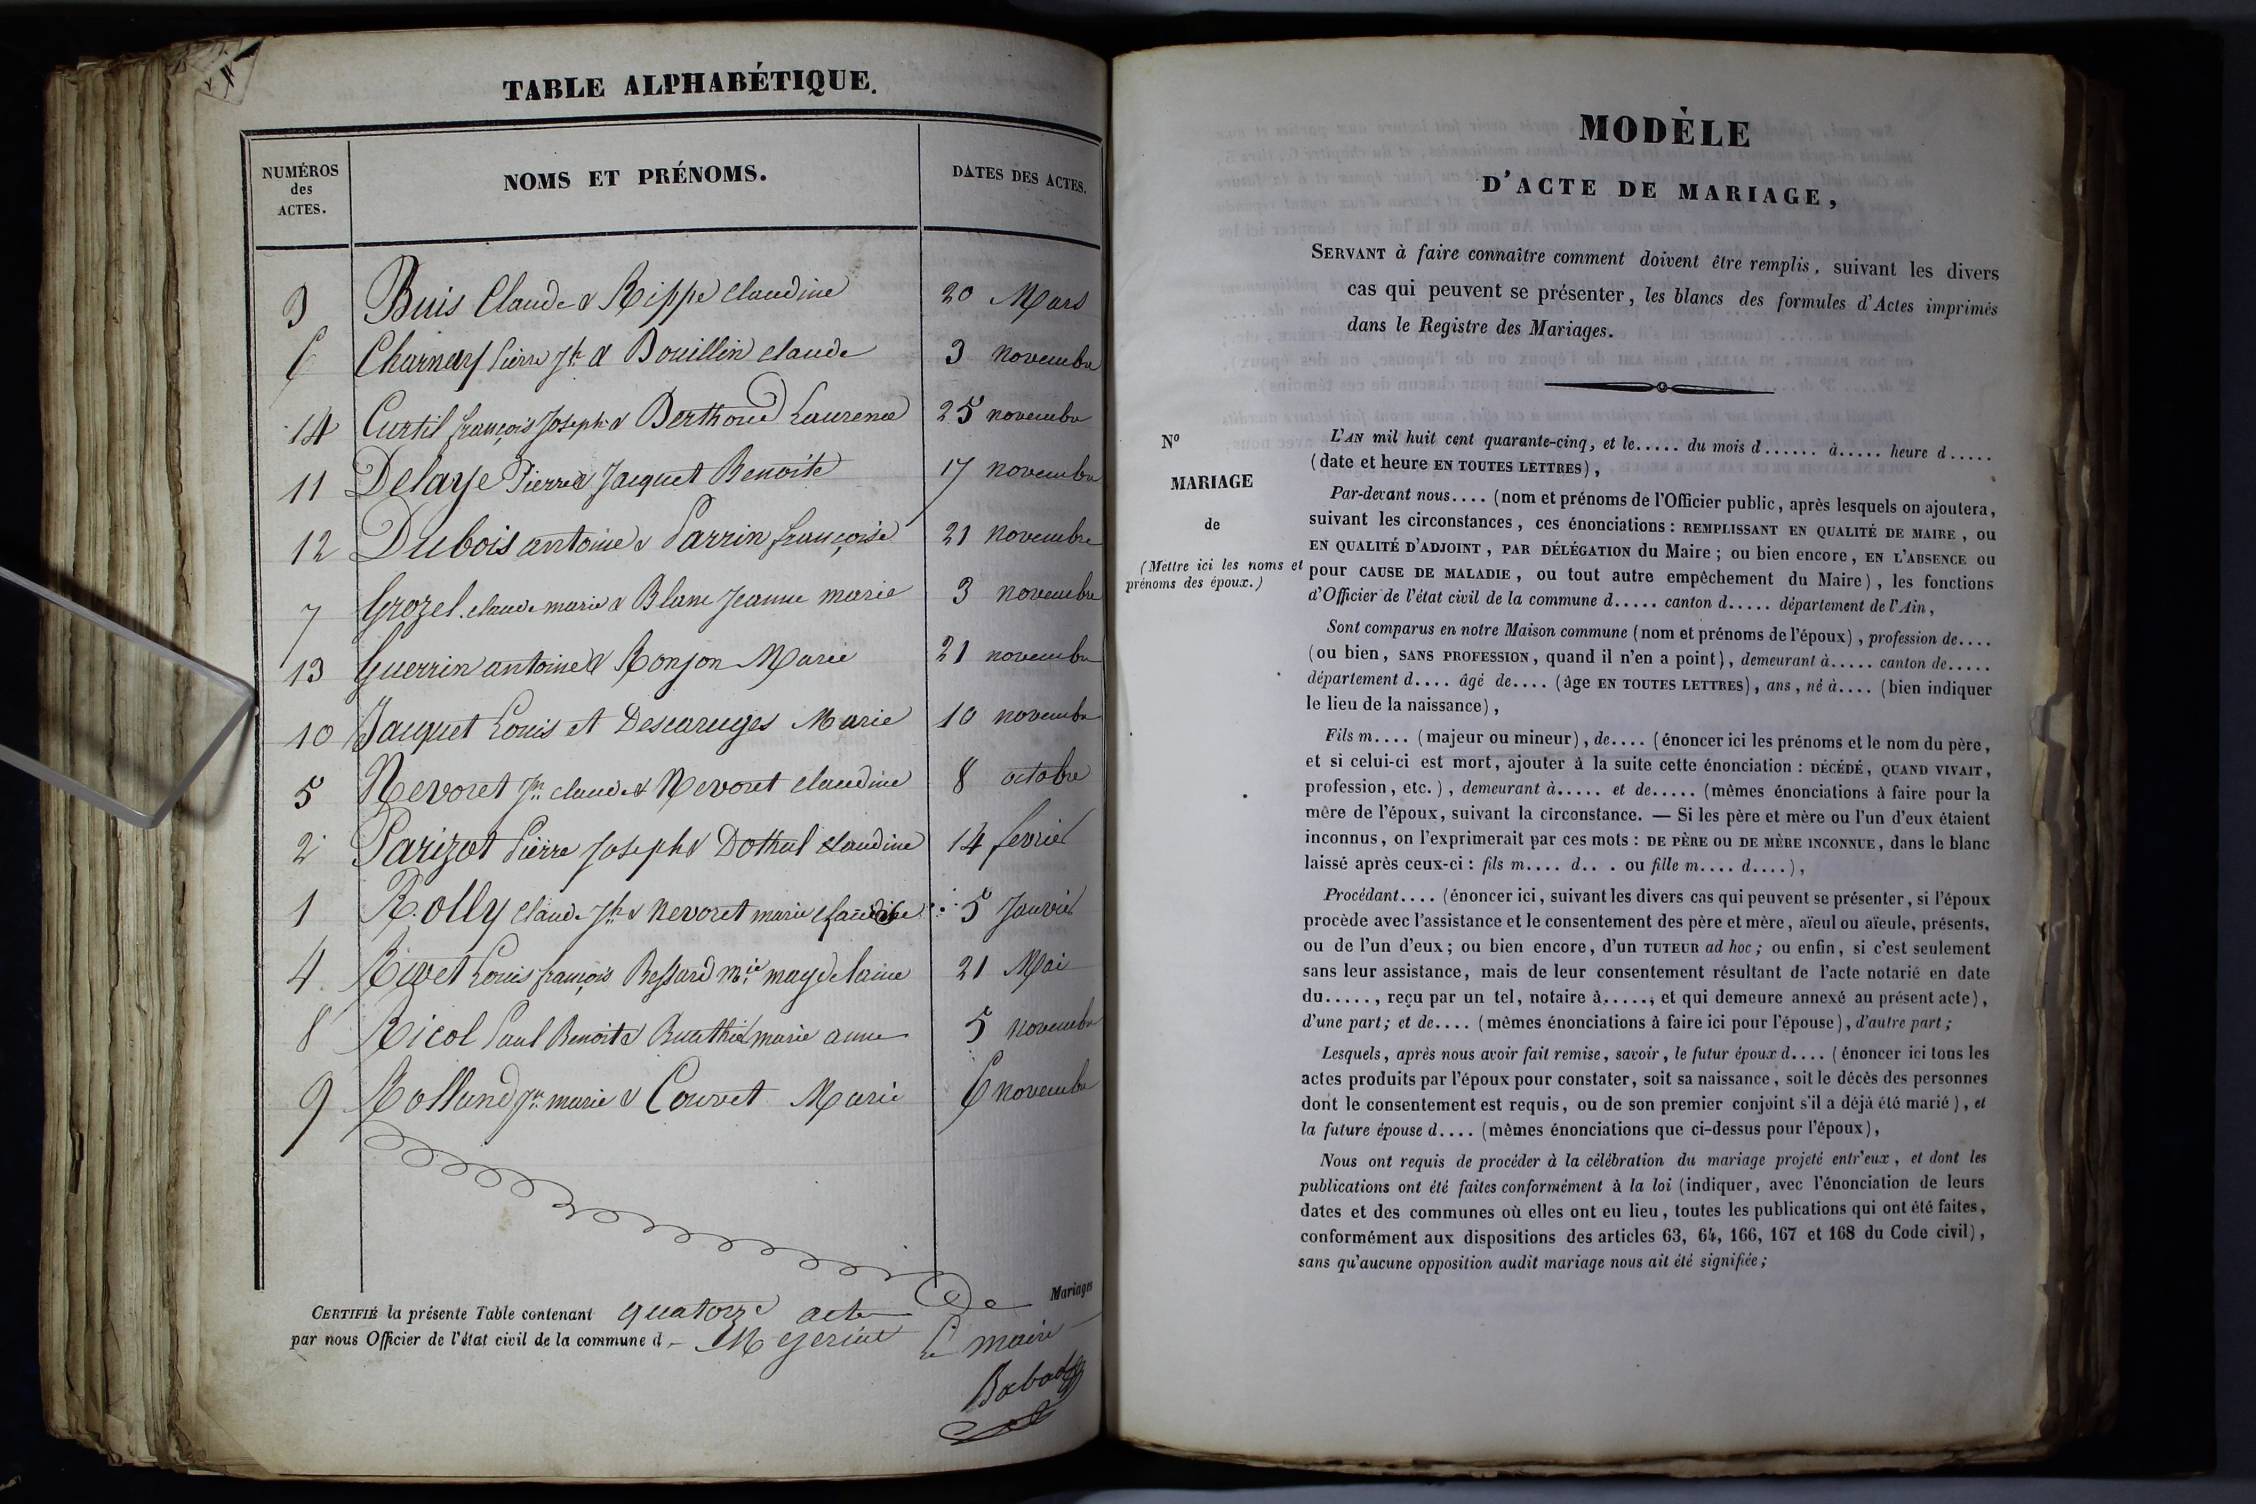 TABLE ALPHABÉTIQUE.
NUMÉROS
des
ACTES.
NOMS ET PRÉNOMS.
DATES DES ACTES.
3 Buis Claude & Rippe claudine 20 Mars
6 Charnay Pierre Jh & Bouillin claude 3 novembre
14 Curtil françois Joseph & Berthoud Laurence 25 novembre
11 Delaye Pierre & Jacquet Benoite 17 novembre
12 Dubois antoine & Parrin françoise 21 novembre
7 Grozel claude marie & Blanc Jeanne marie 3 novembre
13 Guerrin antoine & Ronjon Marie 21 novembre
10 Jacquet Louis et Descaruges Marie 10 novembre
5 Nevoret Jn claude & Nevoret claudine 8 octobre
2 Parizot Pierre Joseph & Dothal claudine 14 fevrier
1 Rolly claude Jh & Nevoret marie claudine 5 Janvier
4 Rivet Louis françois Bessard mie magdelaine 21 Mai
8 Ricol Paul Benoit & Buathier marie anne 5 novembre
9 Rolland Jn marie & Couvet Marie 6 novembre
CERTIFIÉ la présente Table contenant quatorze actes de Mariages
par nous Officier de l'état civil de la commune d Le maire
MODÈLE
D'ACTE DE MARIAGE,
SERVANT à faire connaître comment doivent être remplis, suivant les divers
cas qui peuvent se présenter, les blancs des formules d'Actes imprimés
dans le Registre des Mariages.
No
MARIAGE
de
(Mettre ici les noms et
prénoms des époux.)
L'AN mil huit cent quarante-cinq, et le..... du mois d...... à..... heure d.....
(date et heure EN TOUTES LETTRES),
Par-devant nous.... (nom et prénoms de l'Officier public, après lesquels on ajoutera,
suivant les circonstances, ces énonciations : REMPLISSANT EN QUALITÉ DE MAIRE, ou
EN QUALITÉ D'ADJOINT, PAR DÉLÉGATION du Maire ; ou bien encore, EN L'ABSENCE ou
pour CAUSE DE MALADIE, ou tout autre empêchement du Maire), les fonctions
d'Officier de l'état civil de la commune d..... canton d..... département de l'Ain,
Sont comparus en notre Maison commune (nom et prénoms de l'époux), profession de....
(ou bien, SANS PROFESSION, quand il n'en a point), demeurant à..... canton de.....
département d.... âgé de.... (âge EN TOUTES LETTRES), ans, né à.... (bien indiquer
le lieu de la naissance),
Fils m.... (majeur ou mineur), de.... (énoncer ici les prénoms et le nom du père,
et si celui-ci est mort, ajouter à la suite cette énonciation : DÉCÉDÉ, QUAND VIVAIT,
profession, etc.), demeurant à..... et de..... (mêmes énonciations à faire pour la
mère de l'époux, suivant la circonstance. — Si les père et mère ou l'un d'eux étaient
inconnus, on l'exprimerait par ces mots : DE PÈRE ou DE MÈRE INCONNUE, dans le blanc
laissé après ceux-ci : fils m.... d... . ou fille m.... d....),
Procédant.... (énoncer ici, suivant les divers cas qui peuvent se présenter, si l'époux
procède avec l'assistance et le consentement des père et mère, aïeul ou aïeule, présents,
ou de l'un d'eux; ou bien encore, d'un TUTEUR ad hoc; ou enfin, si c'est seulement
sans leur assistance, mais de leur consentement résultant de l'acte notarié en date
du....., reçu par un tel, notaire à....., et qui demeure annexé au présent acte),
d'une part; et de.... (mêmes énonciations à faire ici pour l'épouse), d'autre part;
Lesquels, après nous avoir fait remise, savoir, le futur époux d.... (énoncer ici tous les
actes produits par l'époux pour constater, soit sa naissance, soit le décès des personnes
dont le consentement est requis, ou de son premier conjoint s'il a déjà été marié), et
la future épouse d.... (mêmes énonciations que ci-dessus pour l'époux),
Nous ont requis de procéder à la célébration du mariage projeté entr'eux, et dont les
publications ont été faites conformément à la loi (indiquer, avec l'énonciation de leurs
dates et des communes où elles ont eu lieu, toutes les publications qui ont été faites,
conformément aux dispositions des articles 63, 64, 166, 167 et 168 du Code civil),
sans qu'aucune opposition audit mariage nous ait été signifiée;